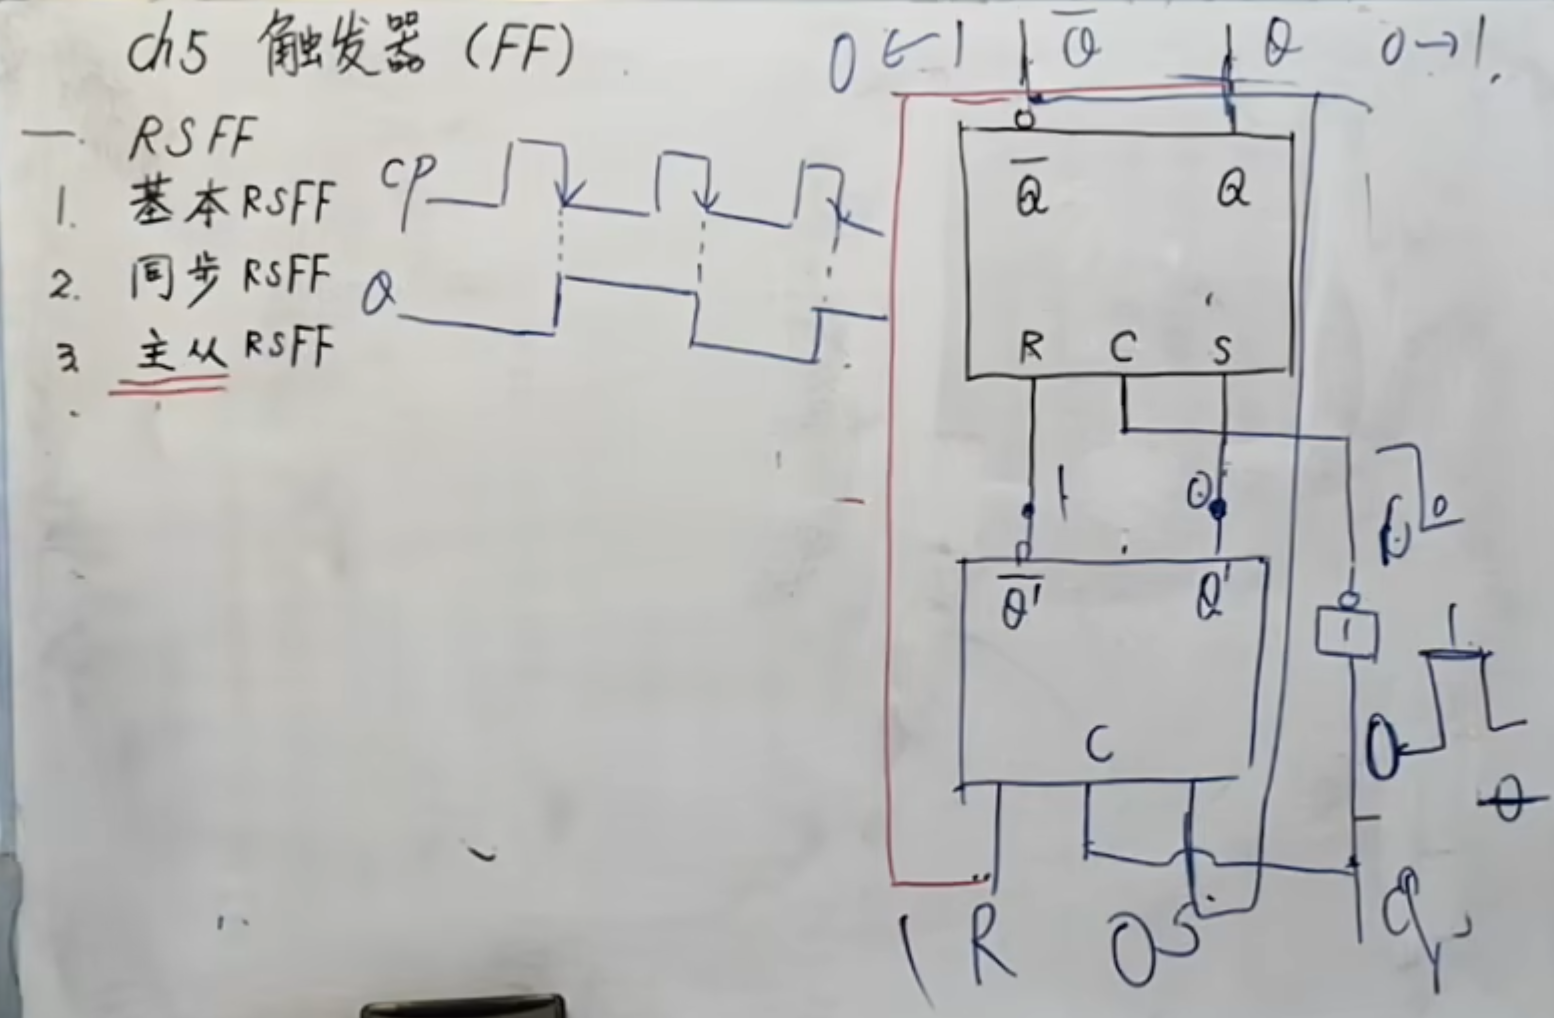 ch5 触发器 (FF)
一. RSFF
1. 基本RSFF
2. 同步RSFF
3 主从RSFF
CP
Q
0 ← 1 Q̅ Q 0→1.
Q̅ Q
R C S
1 0
0
Q̅' Q'
1
1
C
0
0
1 R 0 S